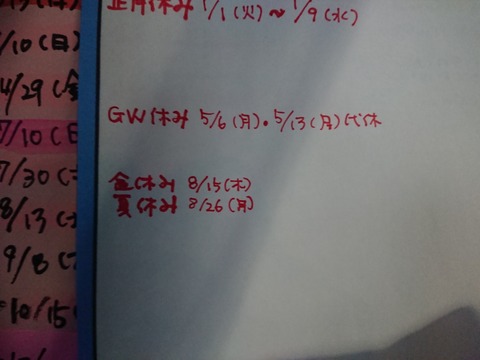 正月休み 1/1(火)～1/9(水)
GW休み 5/6(月)・5/13(月)代休
盆休み 8/15(木)
夏休み 8/26(月)
/10(日)
4/29(金
7/10(日
7/30(土
8/13(土
9/8(
10/15(